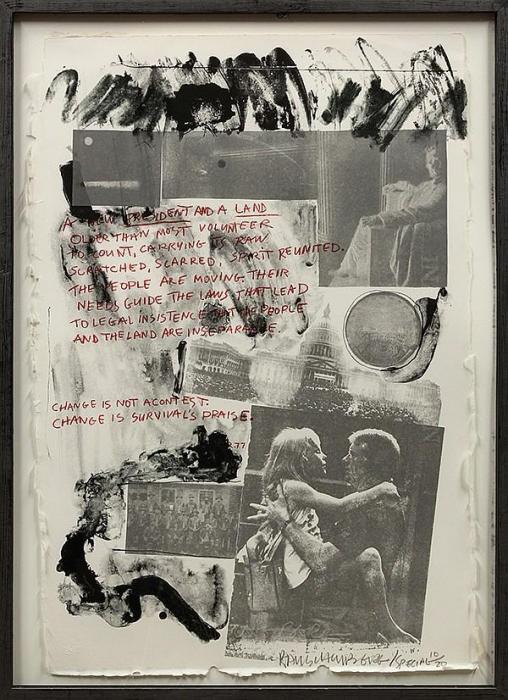 A NEW PRESIDENT AND A LAND
OLDER THAN MOST VOLUNTEER
TO COUNT, CARRYING ITS RAW
SCRATCHED, SCARRED, SPIRIT REUNITED.
THE PEOPLE ARE MOVING. THEIR
NEEDS GUIDE THE LAWS THAT LEAD
TO LEGAL INSISTENCE THE PEOPLE
AND THE LAND ARE INSEPARABLE.
CHANGE IS NOT A CONTEST.
CHANGE IS SURVIVAL'S PRAISE.
77
RAUSCHENBERG / SPECIAL 10/20